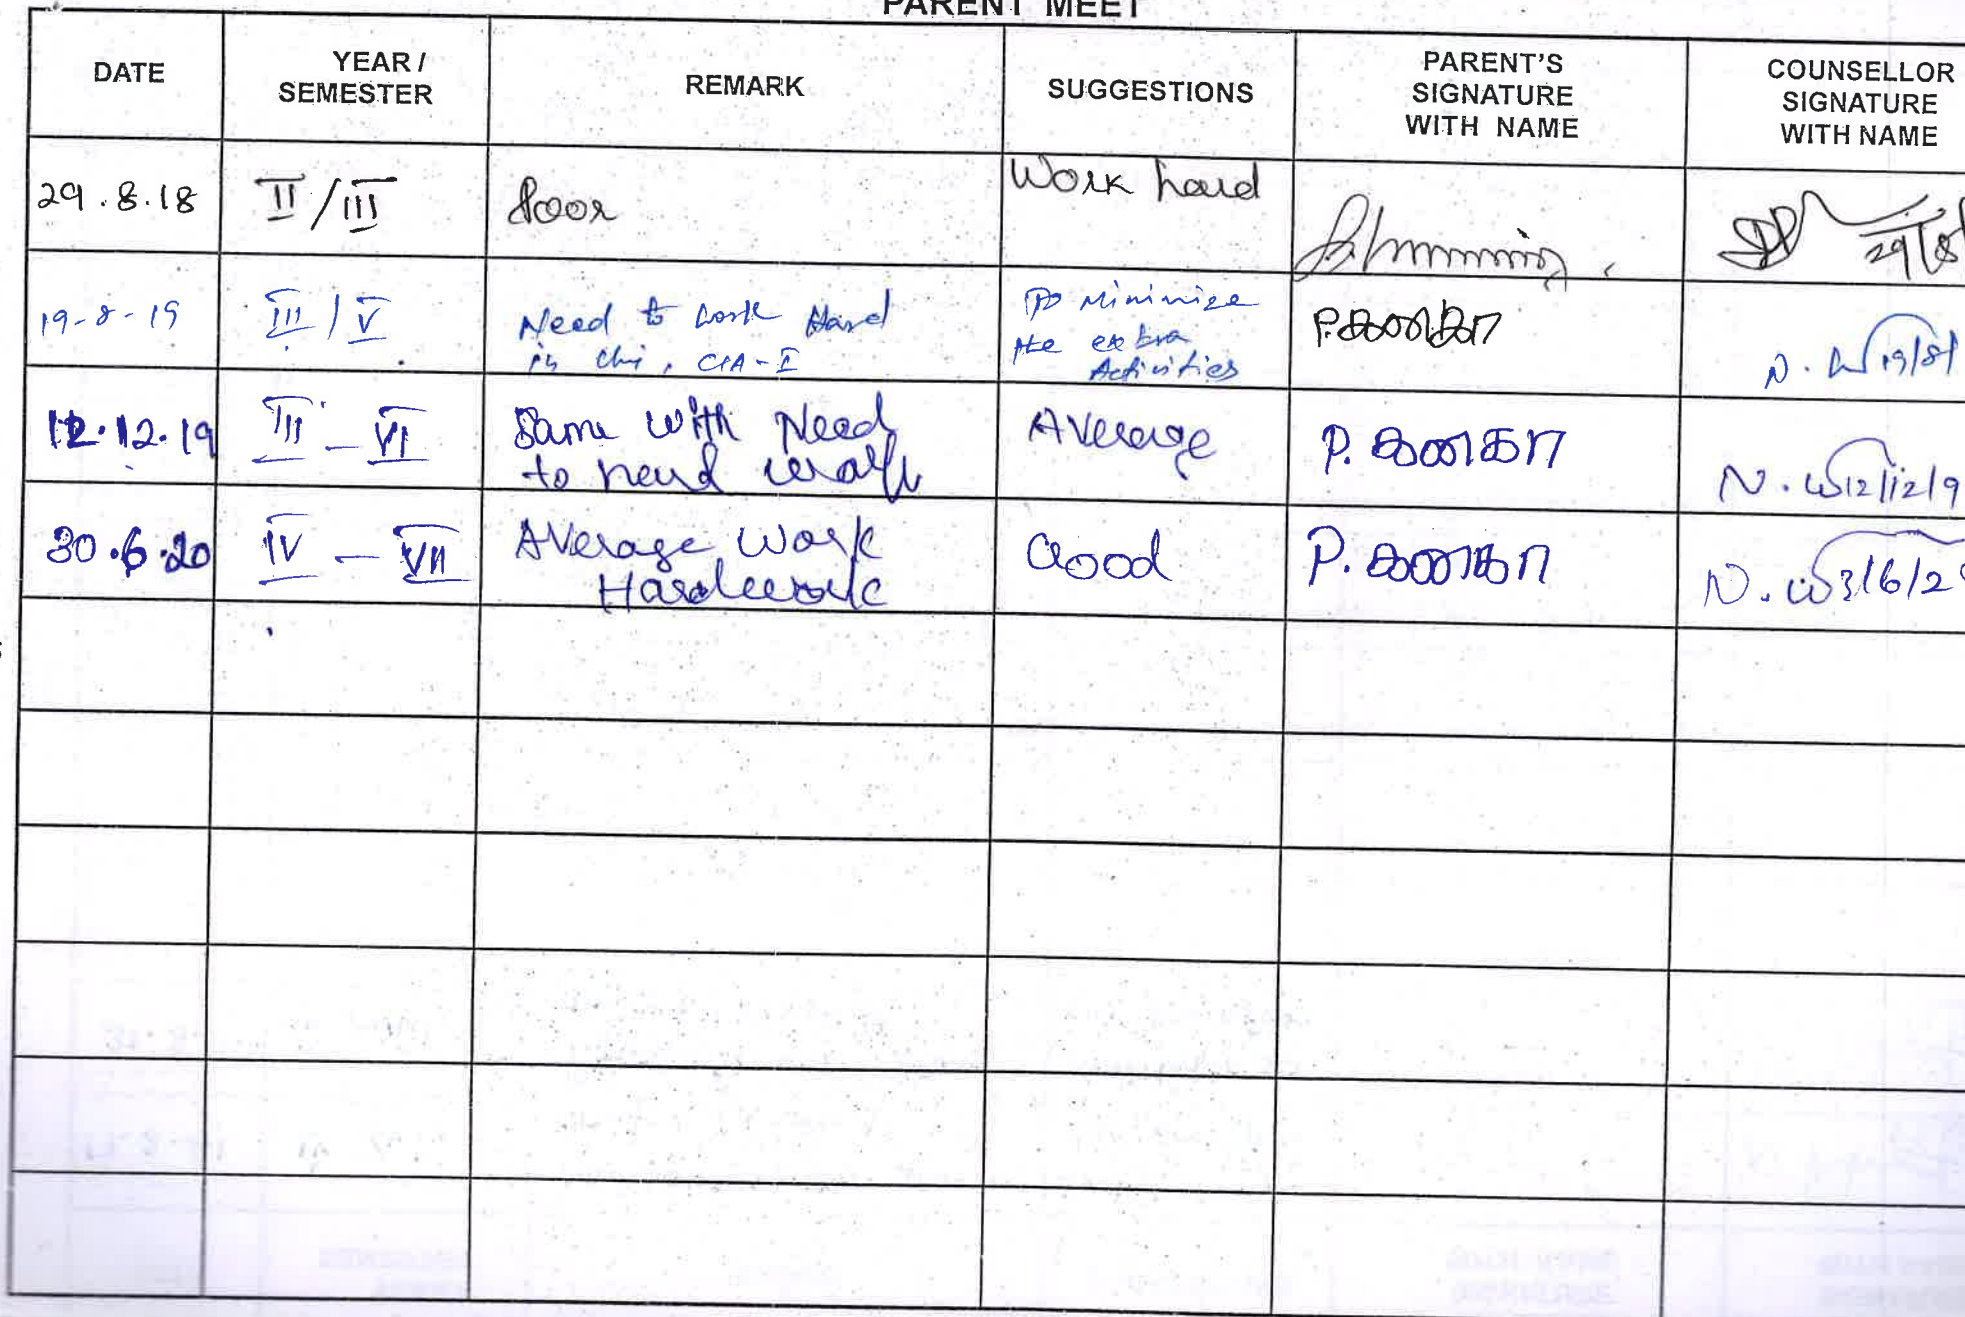 PARENT MEET
DATE
YEAR /
SEMESTER
REMARK
SUGGESTIONS
PARENT'S
SIGNATURE
WITH NAME
COUNSELLOR
SIGNATURE
WITH NAME
29.8.18
II / III
Poor
Work hard
29/8/
19-8-19
III / V
Need to work Hard
in CIA-I
To Minimize
the extra
Activities
P. கனகா
N. 19/8/
12.12.19
III - VI
Same with Need
to
Average
P. கனகா
N. 12/12/9
30.6.20
IV - VII
Average Work
Hardwork
Good
P. கனகா
N. 3/6/2